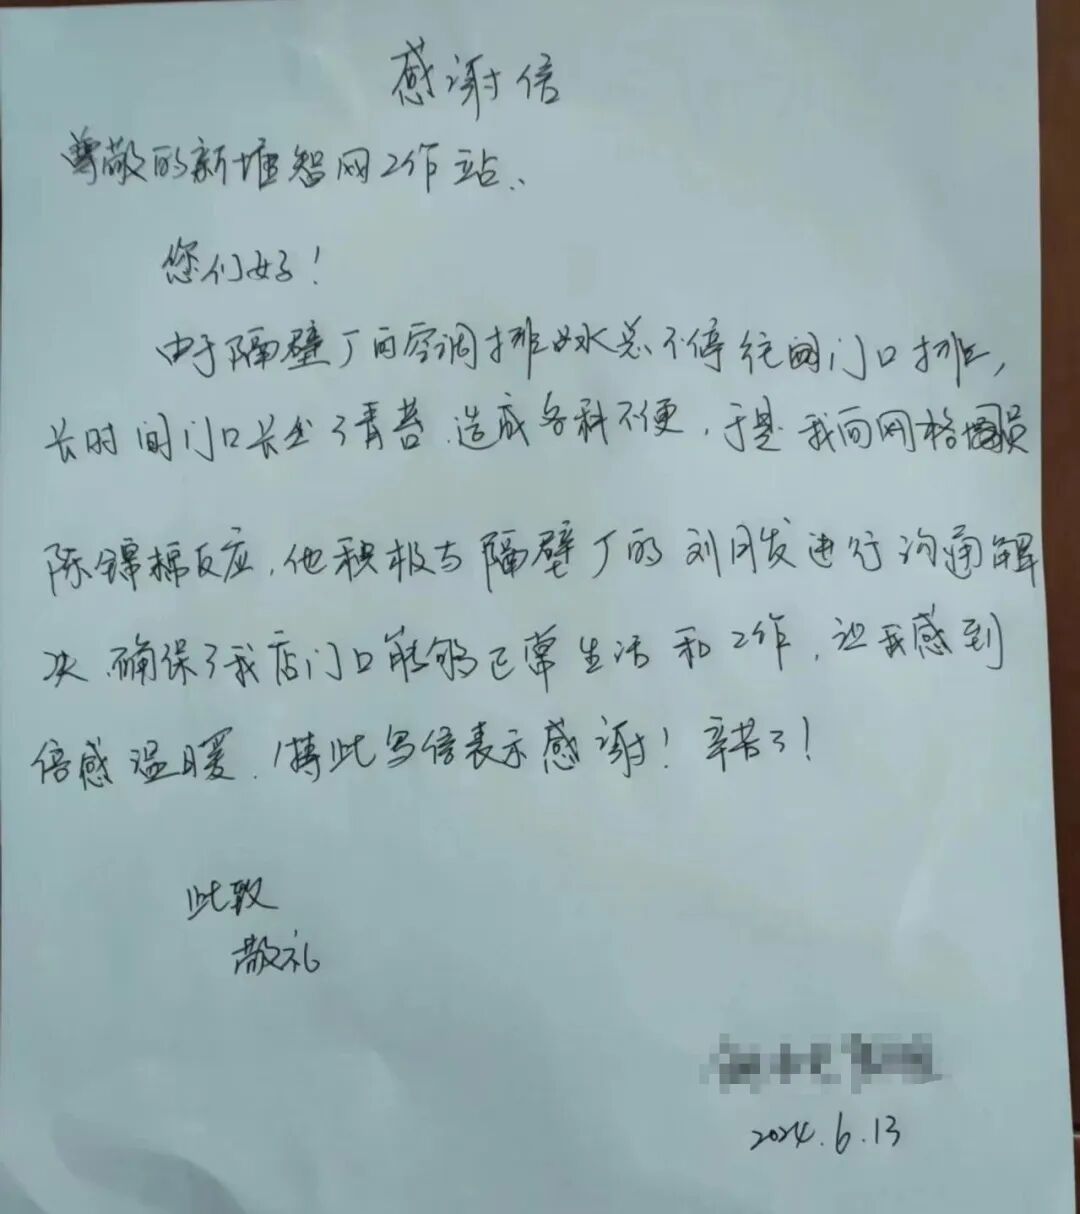 感谢信
尊敬的新塘智网工作站：
您们好！
由于隔壁厂的空调排水总不停往门口排，
长时间门口长出了青苔.造成各种不便，于是我向网格员
陈锦棉反应，他积极与隔壁厂的刘月发进行沟通解
决.确保了我店门口能够正常生活和工作，让我感到
倍感温暖.特此写信表示感谢！辛苦了！
此致
敬礼
2024.6.13